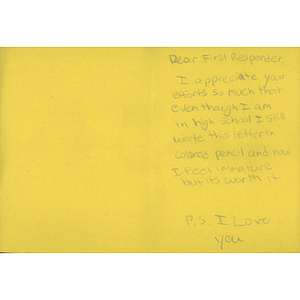 Dear First Responder,
I appreciate your
efforts so much that
even though I am
in high school I still
wrote this letter in
colored pencil and now
I feel immature
but its worth it
P.S. I Love
you